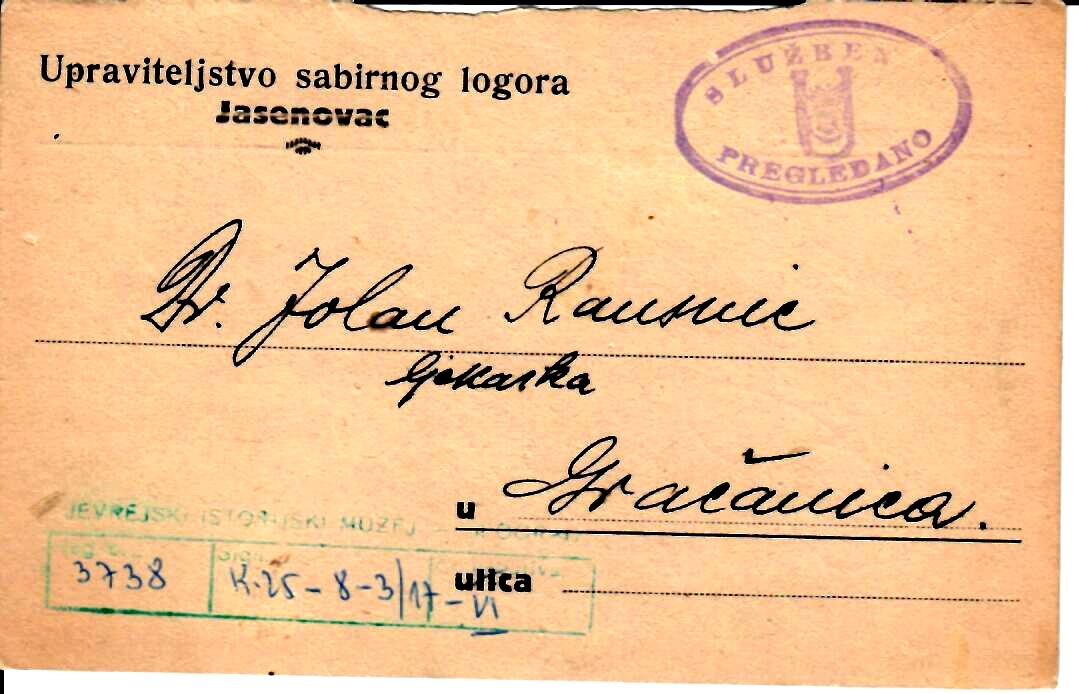 Upraviteljstvo sabirnog logora
Jasenovac
SLUŽBEN
PREGLEDANO
Dr. Jolan Rausnic
ljekarka
u Gračanica.
JEVREJSKI ISTORIJSKI MUZEJ
3738
K.25-8-3/17-VI
ulica